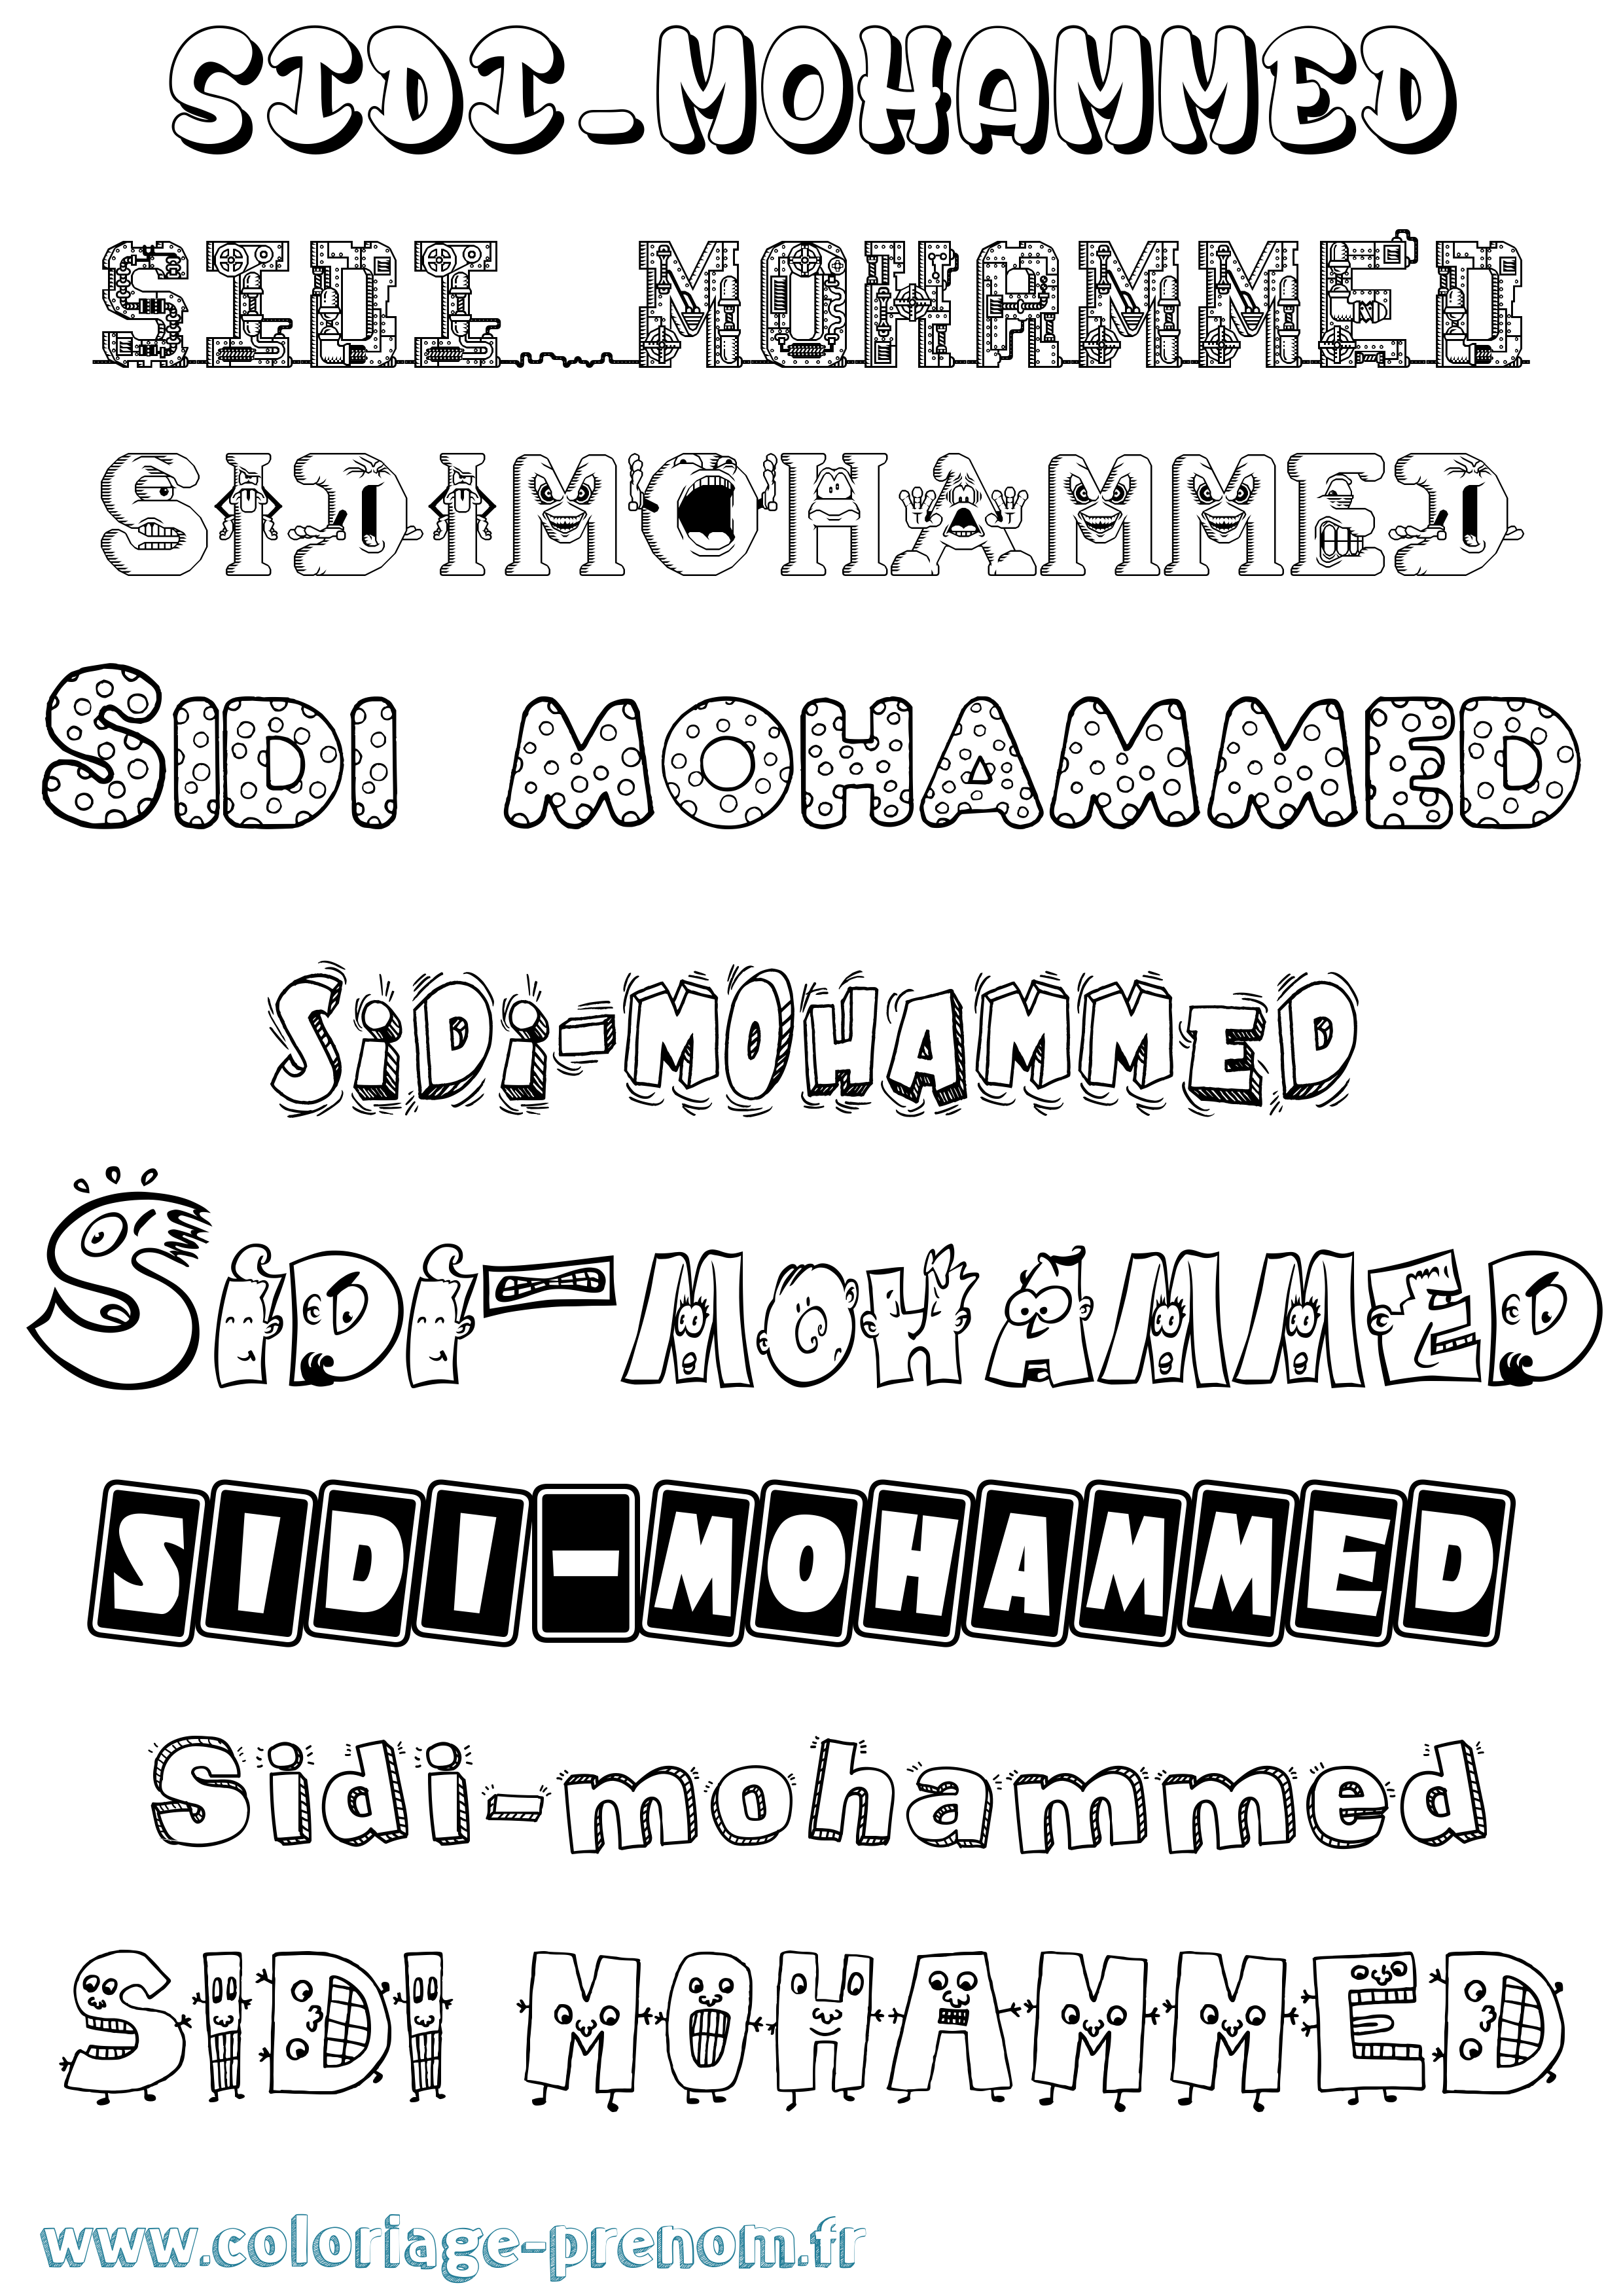 SIDI-MOHAMMED
SIDI MOHAMMED
SIDIMOHAMMED
SIDI MOHAMMED
SiDi-MOHAMMED
SiDi-MOHAMMED
SIDI-MOHAMMED
Sidi-mohammed
SIDI MOHAMMED
www.coloriage-prenom.fr